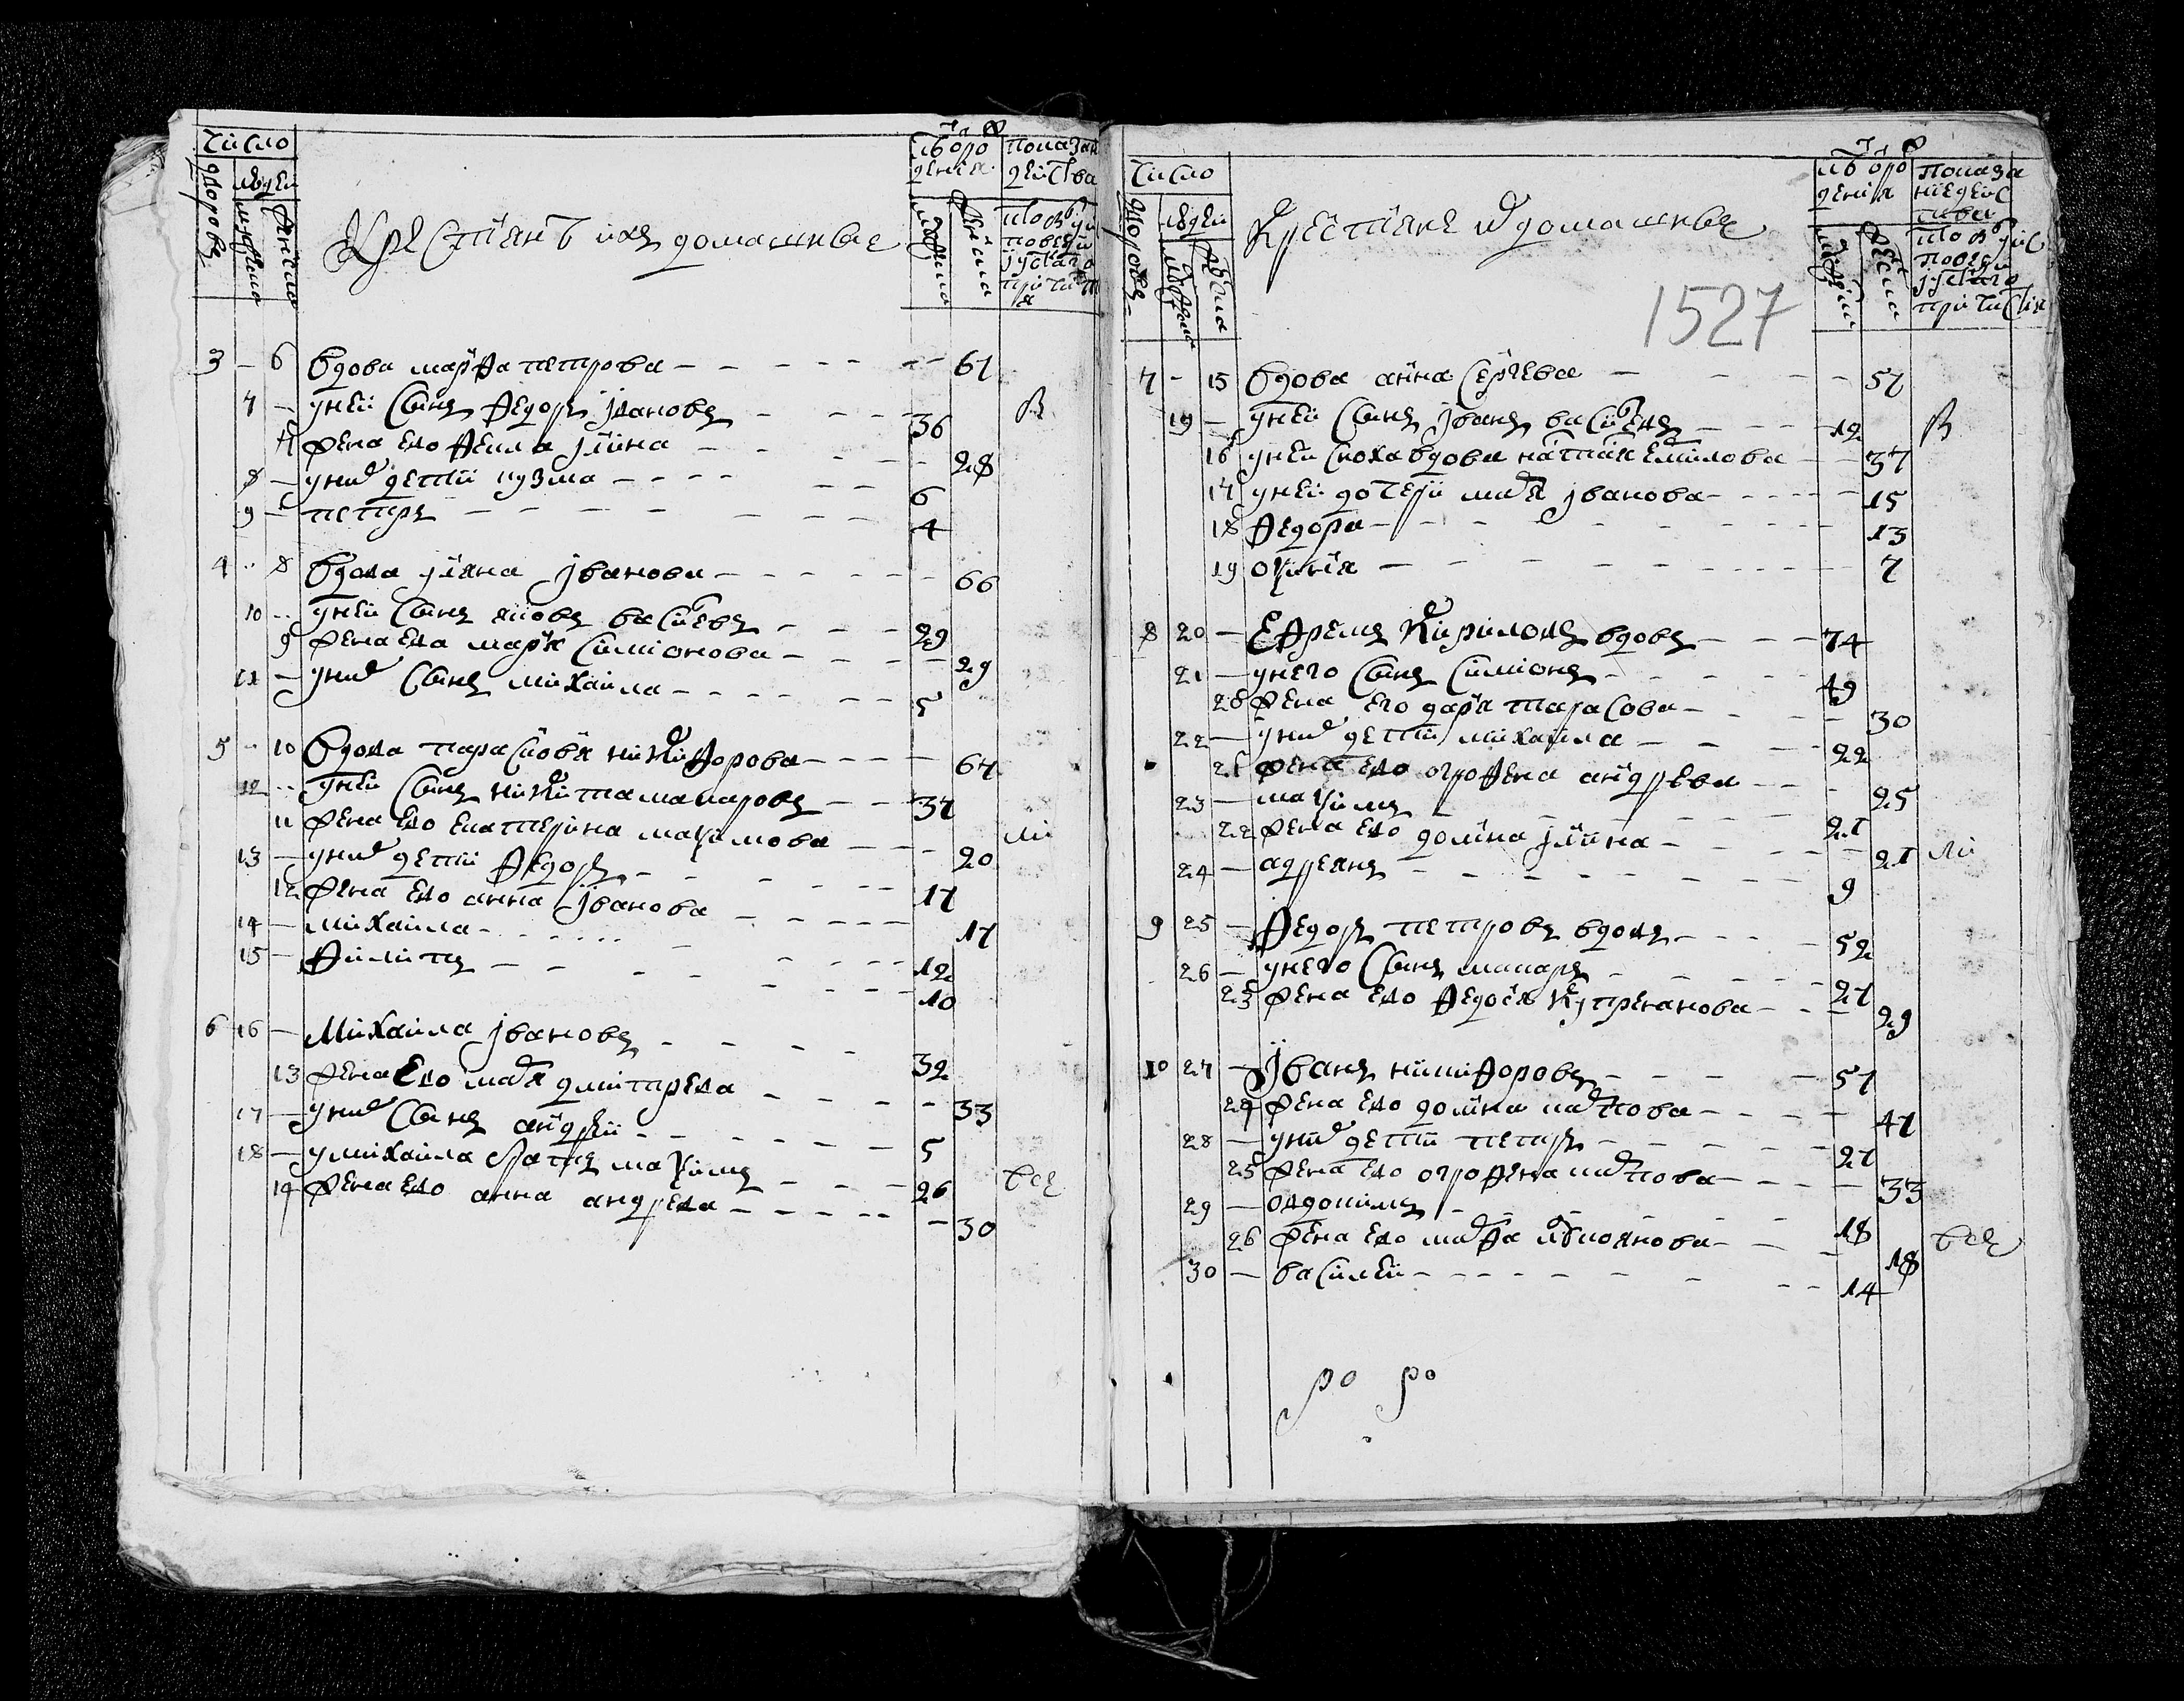 Число
дворовъ
людеи
мужеска
женска
Крестьянѣ ихъ домашныѣ
лѣ
рожденія
мужеска
женска
показан
деиства
кто былъ у исповеди и у святаго причастия
3 – 6 вдова марфа петрова – 61
7 – у неи сынъ федоръ івановъ – 36
7 жена ево фекла ілина – 28
8 – у них дети кузма – 6
9 – петръ – 4
В
4 – 8 вдова ульяна іванова – 66
10 – у неи сынъ яковъ васильевъ – 29
9 жена ево марья симионова – 29
11 – у них сынъ михаила – 5
5 – 10 вдова парасковья никифорова – 67
12 – у неи сынъ никита макаровъ – 37
11 жена ево екатерина максимова – 20
13 – у них дети федоръ – 17
12 жена ево анна іванова – 17
14 – михаила – 12
15 – филипъ – 10
6 16 – Михаила івановъ – 32
13 жена ево марья дмитрева – 33
17 – у них сынъ андреи – 5
18 – у михаила братъ максимъ – 26
14 жена ево анна андрева – 30
всѣ
Число
дворовъ
людеи
мужеска
женска
Крестьяне и домашныѣ
1527
рожденія
показание деиства
кто былъ у исповеди и у святаго причастия
7 – 15 вдова анна сергева – 57
19 – у неи сынъ іванъ васильевъ – 12
16 у неи сноха вдова наталья емилова – 37
17 у неи дочери марья іванова – 15
18 федора – 13
19 оксинья – 7
В
8 20 – Ефремъ Кириловъ вдовъ – 74
21 – у него сынъ симионъ – 49
20 жена его дарья тарасова – 30
22 – у них дети михаила – 22
21 жена ево огрофена андрева – 25
23 – максимъ – 21
22 жена ево домна ілина – 21
24 – адреянъ – 9
9 25 – Федоръ петровъ вдовъ – 52
26 – у него сынъ макаръ – 27
23 жена ево федосья куприанова – 29
10 27 – Іванъ никифоровъ – 51
24 жена ево домна карпова – 41
28 – у них дети петръ – 27
25 жена ево огрофена карпова – 33
29 – овдокимъ – 18
26 жена ево марфа – 18
30 – василеи – 14
всѣ
ро ро